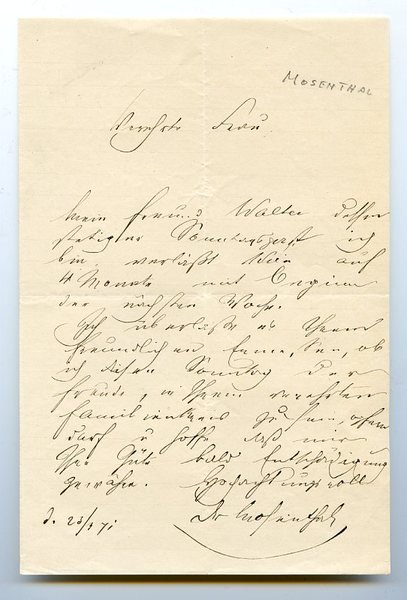 MOSENTHAL
Verehrte Frau
Mein Freund Walter dessen
stetiger Sonntagsgast ich
bin verläßt Wien auf
4 Monate mit Beginn
der nächsten Woche.
Ich überlasse es Ihrem
freundlichen Ermessen, ob
ich diesen Sonntag der
Freude, in Ihrem verehrten
Familienkreis zu sein,
darf u hoffe daß mir
Ihre Güte bald Entschädigung
gewähre. Hochachtungsvoll
Dr Mosenthal